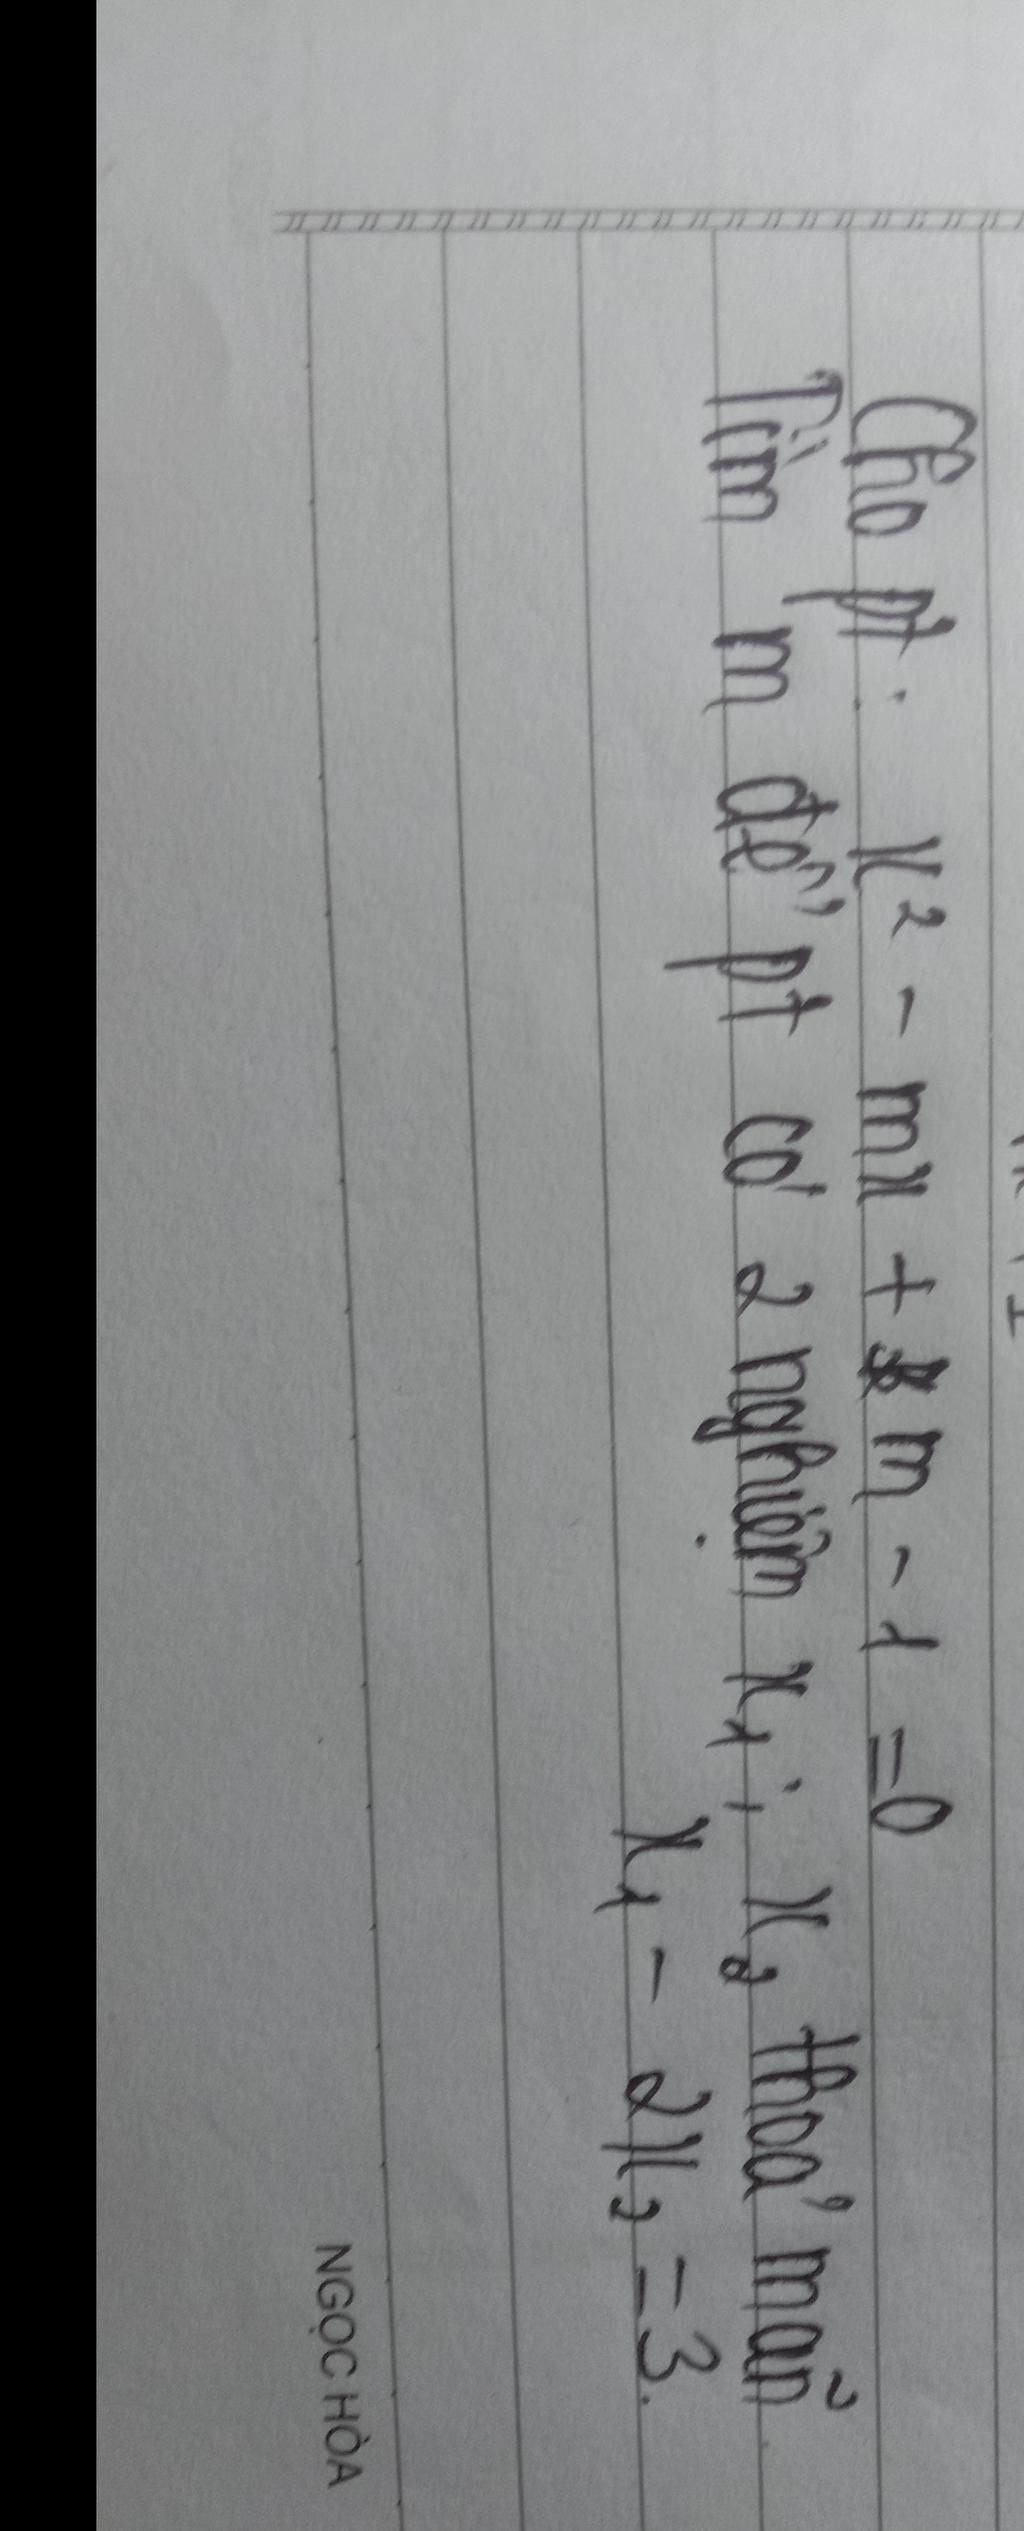 Cho pt: x² - mx + m - 1 = 0
Tìm m để pt có 2 nghiệm x₁; x₂ thoả mãn
x₁ - 2x₂ = 3.
NGỌC HÒA